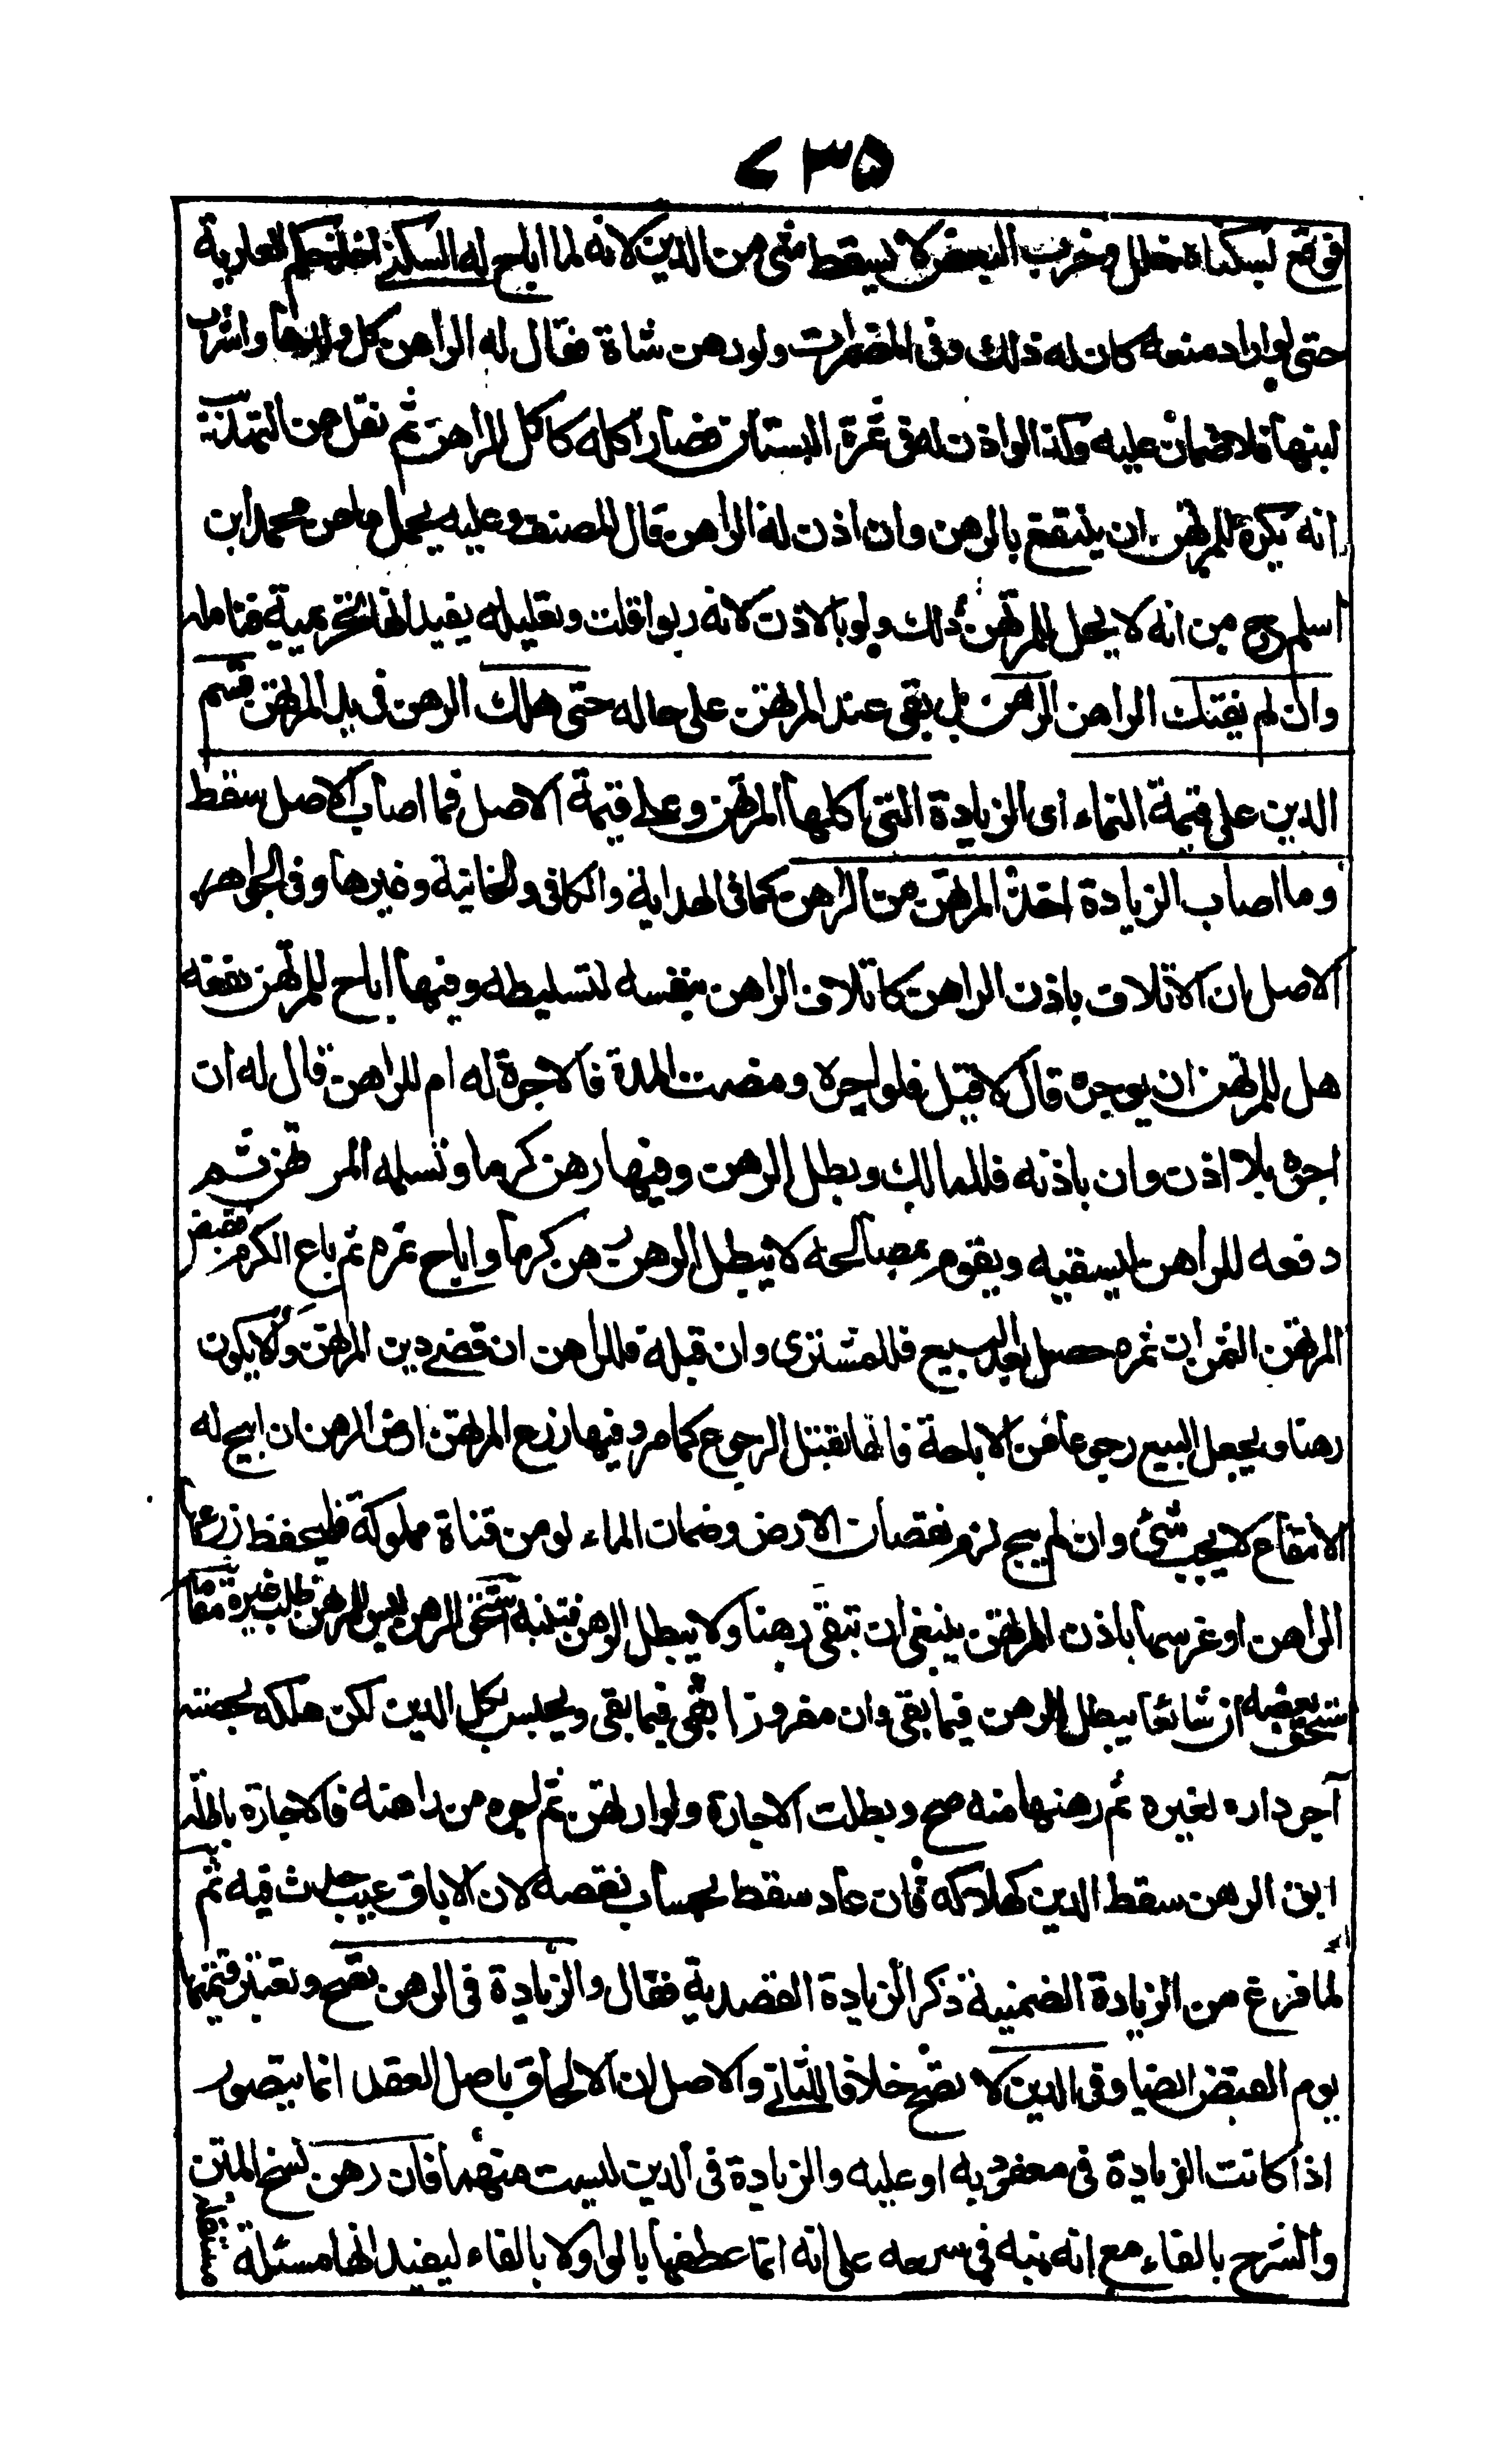 ٧٣٥
فوقع بسكناه خلل وخرب البعض لا يسقط شئ من الدين لانه لما اباح له السكنى اخذ حكم العارية
حتى لو اراد منعه كان له ذلك وفى المضمرات ولو رهن شاة فقال له الراهن كل ولدها واشرب
لبنها فلا ضمان عليه وكذا لو اذن له فى ثمرة البستان فصار اكله كاكل الراهن ثم نقل عن التهذيب
انه يكره للمرتهن ان ينتفع بالرهن وان اذن له الراهن قال المصنف وعليه يحمل ما عن محمد ابن
اسلم رح من انه لا يحل للمرتهن ذلك ولو بالاذن لانه ربوا قلت وتعليله يفيد انها تحريمية فتامله
وان لم يفتك الراهن الرهن بل بقى عند المرتهن على حاله حتى هلك الرهن فى يد المرتهن قسم
الدين على قيمة النماء اى الزيادة التى اكلها المرتهن وعلى قيمة الاصل فما اصاب الاصل سقط
وما اصاب الزيادة اخذ المرتهن من الراهن كما فى الهداية والكافى والخانية وغيرها وفى الجواهر
الاصل ان الاتلاف باذن الراهن كاتلاف الراهن بنفسه لتسليطه وفيها اباح للمرتهن نفعه
هل للمرتهن ان يوجره قال لا قيل فلو اجره ومضت المدة فالاجرة له ام للراهن قال له ان
اجره بلا اذن وان باذنه فللمالك وبطل الرهن وفيها رهن كرما وتسلمه المرتهن ثم
دفعه للراهن ليسقيه ويقوم بمصالحه لا يبطل الرهن رهن كرما واباح ثمره ثم باع الكرم فقبض
المرتهن الثمن ان ثمره حصل بعد البيع فللمشترى وان قبله فللراهن ان قضى دين المرتهن والا يكون
رهنا ويجعل البيع رجوعا عن الاباحة فانها تقبل الرجوع كما مر وفيها زرع المرتهن ارض الرهن ان ابيح له
الانتفاع لا يجب شئ وان لم يبح لزم نقصان الارض وضمان الماء لو من قناة مملوكة فليحفظ زرعها
الراهن او غرسها باذن المرتهن ينبغى ان تبقى رهنا ولا يبطل الرهن فتنبه استحق الرهن ليس للمرتهن طلب غيره مقامه
ستحق بعضه ان شائعا يبطل الرهن فيما بقى وان مفروزا بقى فيما بقى ويحبس بكل الدين لكن هلكه بحصته
آجر داره لغيره ثم رهنها منه صح وبطلت الاجارة ولو ارتهن ثم اجره من راهنه فالاجارة باطلة
ابق الرهن سقط الدين كهلاكه فان عاد سقط بحساب نقصه لان الاباق عيب حدث فيه ثم
لما فرغ من الزيادة الضمنية ذكر الزيادة القصدية فقال والزيادة فى الرهن تصح وتعتبر قيمتها
يوم القبض ايضا وفى الدين لا تصح خلافا للثانى والاصل ان الالحاق باصل العقد انما يتصور
اذا كانت الزيادة فى معقود به او عليه والزيادة فى الدين ليست منهما فان رهن نسخ المتن
والشرح بالفاء مع انه نبه فى شرحه على انه انما عطفها بالواو لا بالفاء ليفيد انها مسئلة مستقلة